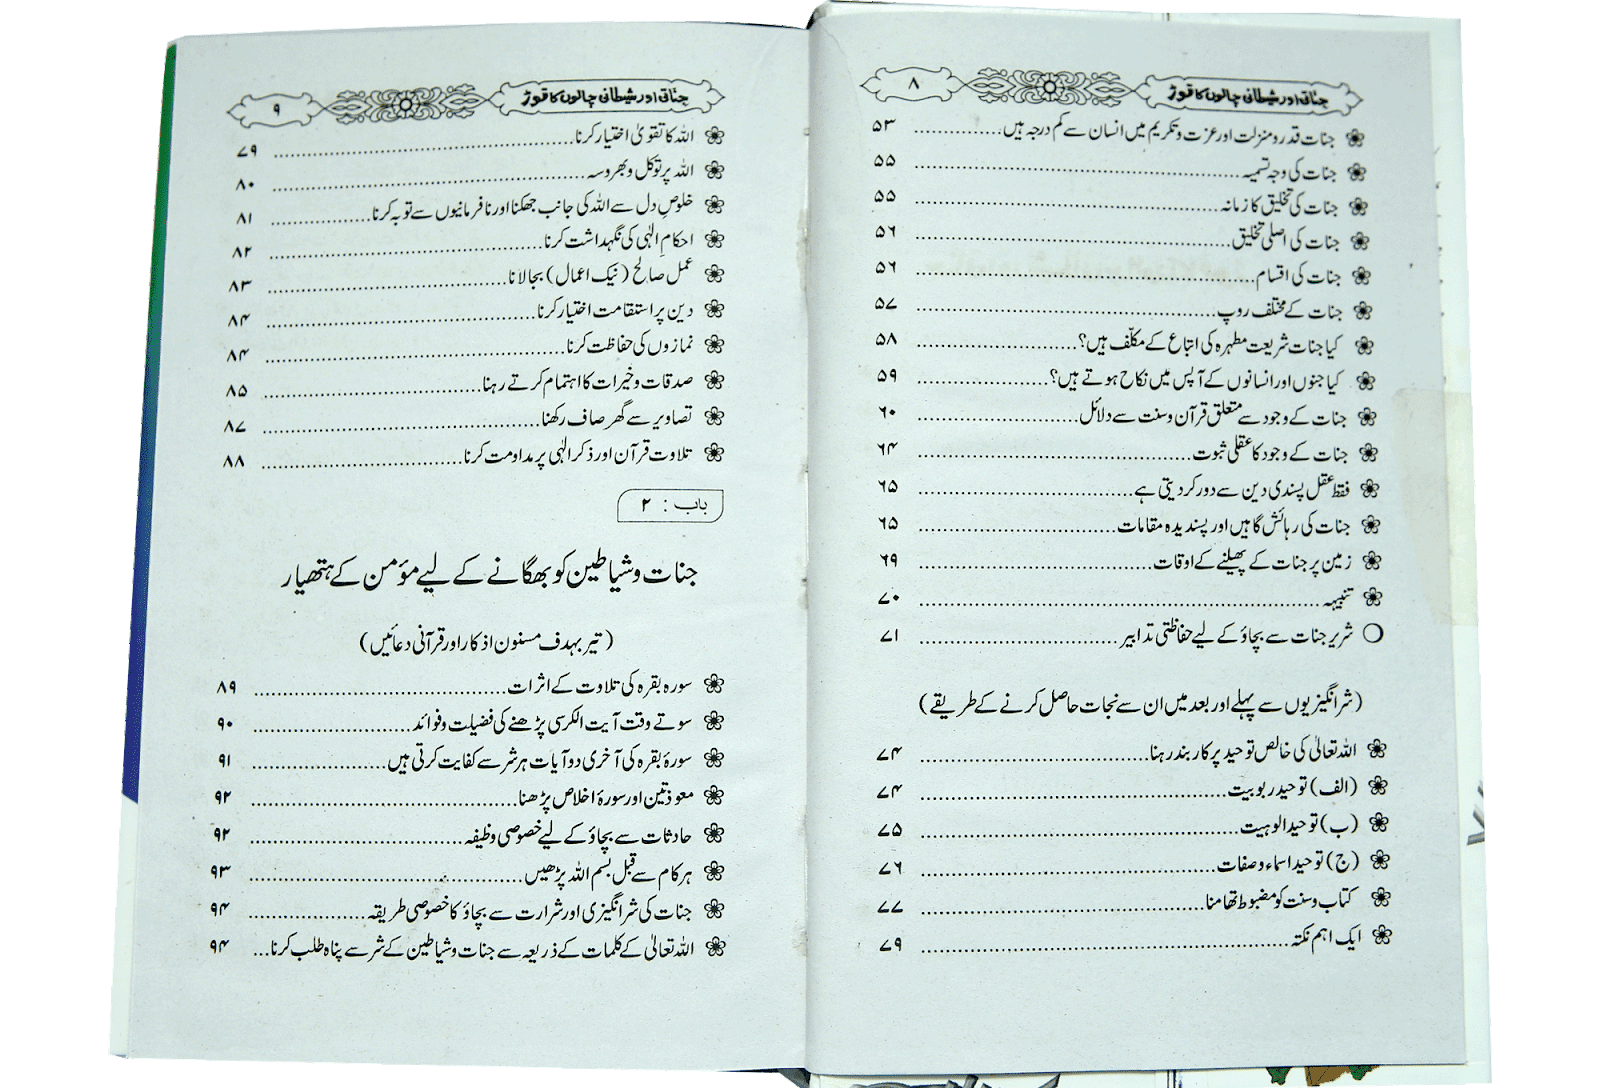 ۸ جناتی اور شیطانی چالوں کا توڑ
جنات قدر و منزلت اور عزت و تکریم میں انسان سے کم درجہ ہیں ۵۳
جنات کی وجہ تسمیہ ۵۵
جنات کی تخلیق کا زمانہ ۵۵
جنات کی اصلی تخلیق ۵۶
جنات کی اقسام ۵۶
جنات کے مختلف روپ ۵۷
کیا جنات شریعت مطہرہ کی اتباع کے مکلّف ہیں؟ ۵۸
کیا جنوں اور انسانوں کے آپس میں نکاح ہوتے ہیں؟ ۵۹
جنات کے وجود سے متعلق قرآن و سنت سے دلائل ۶۰
جنات کے وجود کا عقلی ثبوت ۶۴
فقط عقل پسندی دین سے دور کر دیتی ہے ۶۵
جنات کی رہائش گاہیں اور پسندیدہ مقامات ۶۵
زمین پر جنات کے پھیلنے کے اوقات ۶۹
تنبیہ ۷۰
شریر جنات سے بچاؤ کے لیے حفاظتی تدابیر ۷۱
(شر انگیزیوں سے پہلے اور بعد میں ان سے نجات حاصل کرنے کے طریقے)
اللہ تعالیٰ کی خالص توحید پر کاربند رہنا ۷۴
(الف) توحید ربوبیت ۷۴
(ب) توحید الوہیت ۷۵
(ج) توحید اسماء و صفات ۷۶
کتاب و سنت کو مضبوط تھامنا ۷۷
ایک اہم نکتہ ۷۹
۹ جناتی اور شیطانی چالوں کا توڑ
اللہ کا تقویٰ اختیار کرنا ۷۹
اللہ پر توکل و بھروسہ ۸۰
خلوصِ دل سے اللہ کی جانب جھکنا اور نافرمانیوں سے توبہ کرنا ۸۱
احکامِ الٰہی کی نگہداشت کرنا ۸۲
عمل صالح (نیک اعمال) بجالانا ۸۳
دین پر استقامت اختیار کرنا ۸۴
نمازوں کی حفاظت کرنا ۸۴
صدقات و خیرات کا اہتمام کرتے رہنا ۸۵
تصاویر سے گھر صاف رکھنا ۸۷
تلاوت قرآن اور ذکر الٰہی پر مداومت کرنا ۸۸
باب : ۲
جنات و شیاطین کو بھگانے کے لیے مؤمن کے ہتھیار
(تیر بہدف مسنون اذکار اور قرآنی دعائیں)
سورہ بقرہ کی تلاوت کے اثرات ۸۹
سوتے وقت آیت الکرسی پڑھنے کی فضیلت و فوائد ۹۰
سورۂ بقرہ کی آخری دو آیات ہر شر سے کفایت کرتی ہیں ۹۱
معوذتین اور سورۂ اخلاص پڑھنا ۹۲
حادثات سے بچاؤ کے لیے خصوصی وظیفہ ۹۲
ہر کام سے قبل بسم اللہ پڑھیں ۹۳
جنات کی شر انگیزی اور شرارت سے بچاؤ کا خصوصی طریقہ ۹۴
اللہ تعالیٰ کے کلمات کے ذریعہ سے جنات و شیاطین کے شر سے پناہ طلب کرنا ۹۴